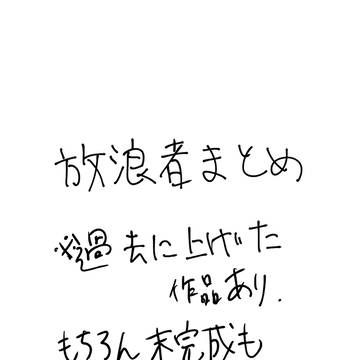 放浪者まとめ
※過去に上げた
作品あり.
もちろん未完成も